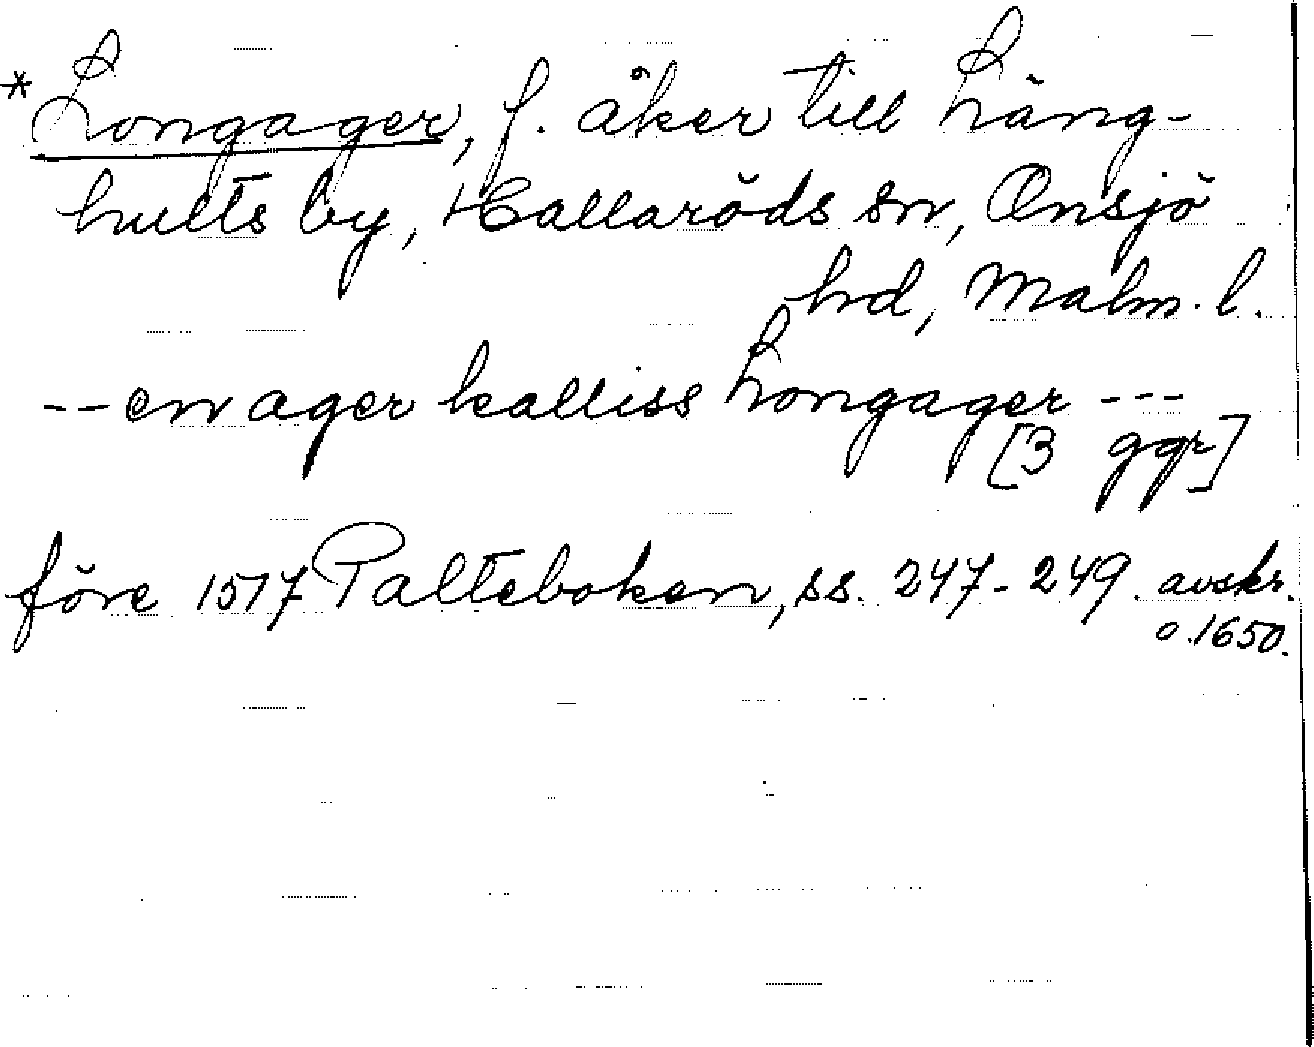 *Longager, f. åker till Lång-
hults by, Hallaröds sn, Onsjö
hd, Malm. l.
--en ager kalliss Longager ---
[3 ggr]
före 1517 Palteboken, ss. 247-249. avskr.
o. 1650.